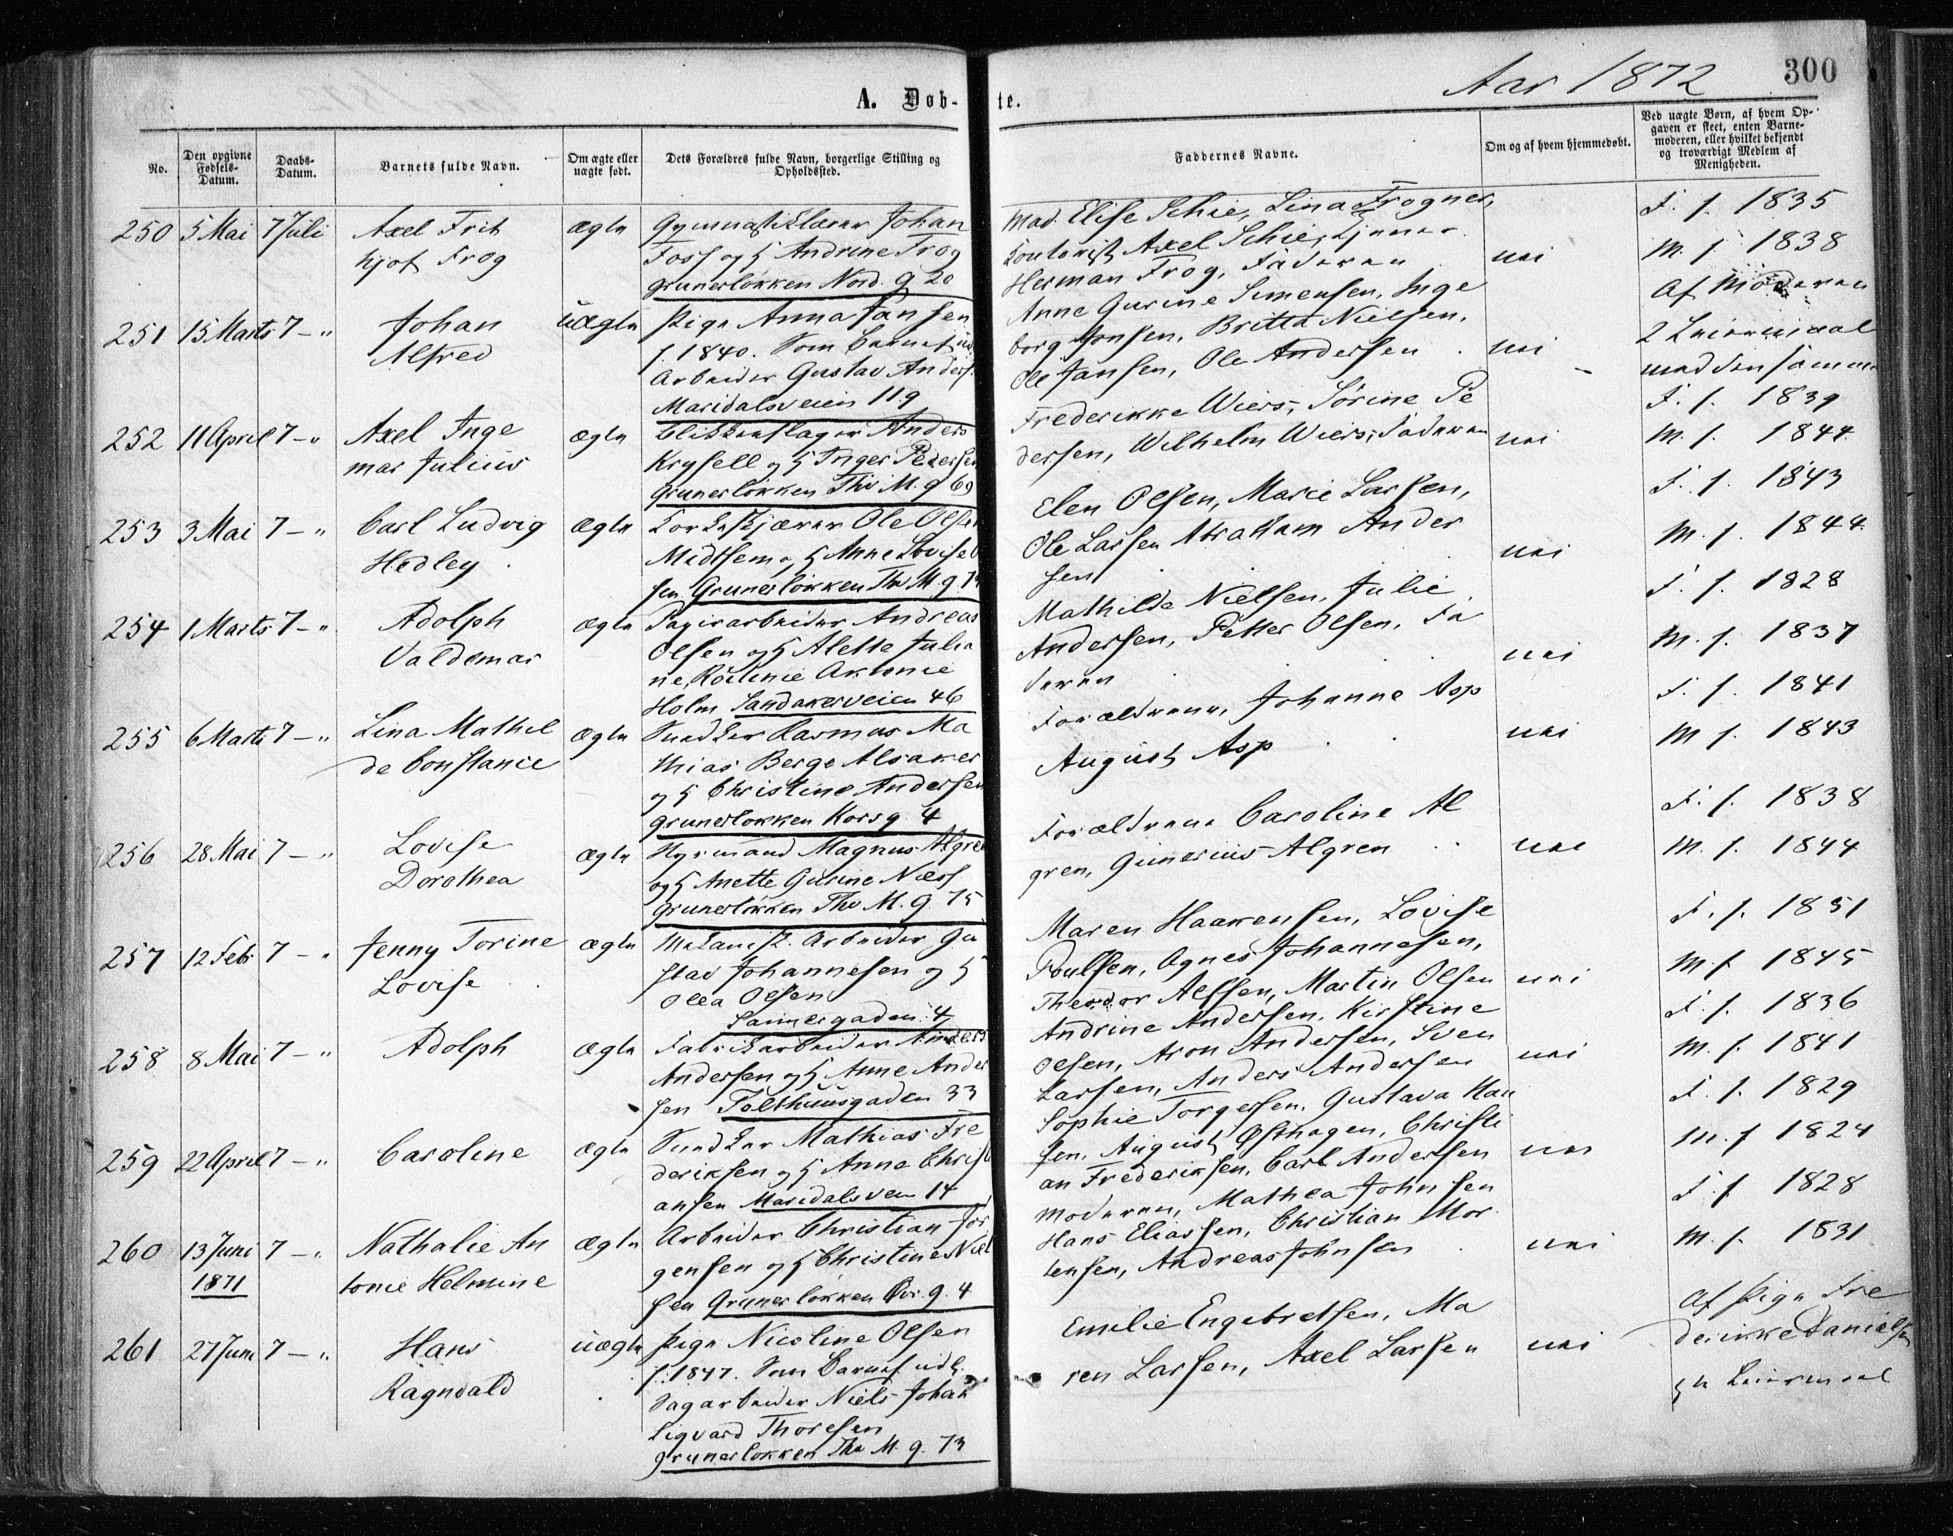 Aar 1872
300
A. Døb-
te.
No.
Den opgivne Fødsels-Datum.
Daabs-Datum.
Barnets fulde Navn.
Om ægte eller uægte født.
Dets Forældres fulde Navn, borgerlige Stilling og Opholdssted.
Faddernes Navne.
Om og af hvem hjemmedøbt.
Ved uægte Børn, af hvem Op-
gaven er skeet, enten Barne-
moderen, eller hvilket bekjendt
og troværdigt Medlem af
Menigheden.
250 5 Mai 7 Juli Axel Frit ægte Gymnastiklærer Johan
hjof Frog Foss og H Andrine Frog
Grunerløkken Nord. g 20
Mad. Elise Schie, Lina Frogner,
Axel Schie,
Herman Frog, Faderen
nei
F. f. 1835
M. f. 1838
Af Moderen
251 15 Marts 7 - " Johan uægte Pige Anna Jansen
Alfred f. 1840. Som Barnef.
Arbeider Gustav Anders.
Maridalsveien 119
Anne Gurine Simensen, Inge
borg Jonsen, Britta Nielsen,
Ole Jansen, Ole Andersen
nei
2 Leiermaal
med den samme
252 11 April 7 - " Axel Inge ægte Blikkenslager Anders
mar Julius Krysell og H Inger Pedersen
Grunerløkken Thv M. g 69
Frederikke Wiers, Sørine Pe
dersen, Wilhelm Wiers, Faderen
nei
F. f. 1839
M. f. 1844
253 3 Mai 7 - " Carl Ludvig ægte Korkeskjærer Ole Olsen
Hedley Midtsem og H Anne Lovise O
sen Grunerløkken Thv M. g. 74
Elen Olsen, Marie Larsen,
Ole Larsen Abraham Ander
sen
nei
F. f. 1843
M. f. 1844
254 1 Marts 7 - " Adolph ægte Papirarbeider Andreas
Valdemar Olsen og H Alette Julia
ne, Antonie
Holm Sandakerveien 46
Mathilde Nielsen, Julie
Andersen, Petter Olsen, Fa
deren
nei
F. f. 1828
M. f. 1837
255 6 Marts 7 - " Lina Mathil ægte Snedker Rasmus Ma
de Constance thias Berge Alsaker
og H Christine Andersen
Grunerløkken Korsg 4
Forældrene, Johanne Asp
August Asp
nei
F. f. 1841
M. f. 1843
256 28 Mai 7 - " Lovise ægte Hyrmand Magnus Algren
Dorothea og H Anette Gurine Næss
Grunerløkken Thv M. g. 75
Forældrene Caroline Al
gren, Gunerius Algren
nei
F. f. 1838
M. f. 1844
257 12 Feb 7 - " Jenny Torine ægte Mekanisk. Arbeider Gu
Lovise stav Johannesen og H
Olea Olsen
Sannergaden 4
Maren Haakensen, Lovise
Poulsen, Agnes Johannesen,
Theodor Alfsen, Martin Olsen
nei
F. f. 1851
M. f. 1845
258 8 Mai 7 - " Adolph ægte Fabrikarbeider Anders
Andersen og H Anne Ander
sen Telthuusgaden 33
Andrine Andersen, Kirstine
Olsen, Aron Andersen, Sven
Larsen, Anders Andersen
nei
F. f. 1836
M. f. 1841
259 22 April 7 - " Caroline ægte Snedker Mathias Fre
deriksen og H Anne Christi
ansen Maridalsveien 14
Sophie Torgersen, Gustava Han
sen, August Østhagen, Christi
an Frederiksen, Carl Andersen
nei
F. f. 1829
M. f. 1824
260 13 Juni 7 - " Nathalie An ægte Arbeider Christian Jør
1871 tonie Helmine gensen og H Christine Niel
sen Grunerløkken g. 4
Moderen, Mathea Johnsen
Hans Eliassen, Christian Mor
tensen, Andreas Johnsen
nei
F. f. 1828
M. f. 1831
261 27 Juni 7 - " Hans uægte Pige Nicoline Olsen
Ragnvald f. 1847. Som Barnef. udl.
Sagarbeider Niels Johan
Sigvard Thoresen
Grunerløkken Thv M. g. 73
Emelie Engebretsen, Ma
ren Larsen, Axel Larsen
nei
Af Pige Fre
derikke Danielsen
Leiermaal